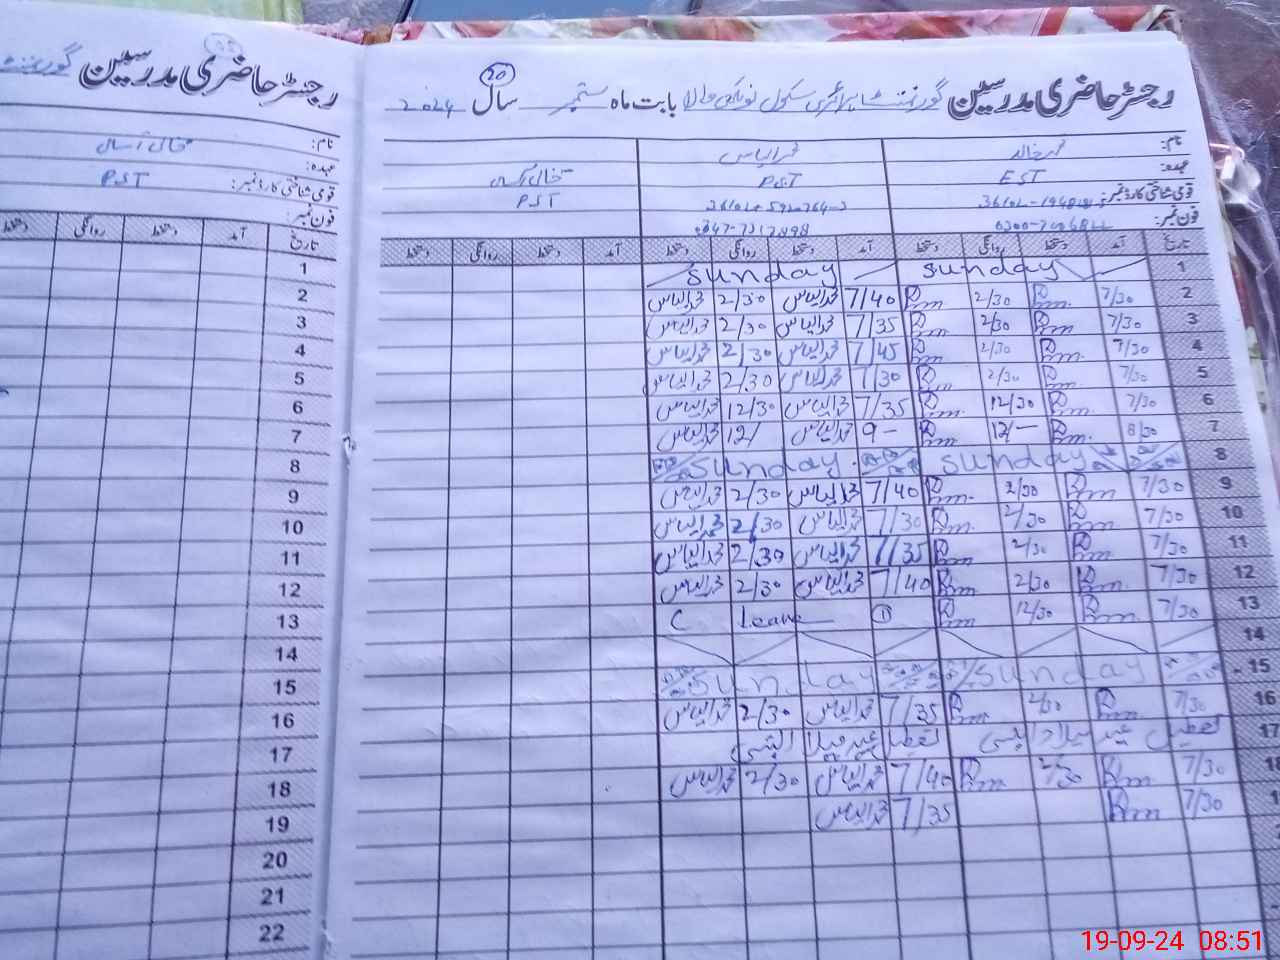 رجسٹر حاضری مدرسین گورنمنٹ پرائمری سکول بابت ماہ ستمبر سال 2024
20
نام: محمد خالد محمد الیاس خالی آسامی
عہدہ: EST PST PST
قومی شناختی کارڈ نمبر:
فون نمبر:
تاریخ آمد دستخط روانگی دستخط آمد دستخط روانگی دستخط آمد دستخط روانگی دستخط
1 sunday sunday
2 7/30 2/30 7/40 محمد الیاس 2/30 محمد الیاس
3 7/30 2/30 7/35 محمد الیاس 2/30 محمد الیاس
4 7/30 2/30 7/45 محمد الیاس 2/30 محمد الیاس
5 7/30 2/30 7/30 محمد الیاس 2/30 محمد الیاس
6 7/30 12/30 7/35 محمد الیاس 12/30 محمد الیاس
7 8/30 12/- 9- محمد الیاس 12/ محمد الیاس
8 sunday sunday
9 7/30 2/30 7/40 محمد الیاس 2/30 محمد الیاس
10 7/30 2/30 7/30 محمد الیاس 2/30 محمد الیاس
11 7/30 2/30 7/35 محمد الیاس 2/30 محمد الیاس
12 7/30 2/30 7/40 محمد الیاس 2/30 محمد الیاس
13 7/30 12/30 1 Leave C
14
15 sunday sunday
16 7/30 2/30 7/35 محمد الیاس 2/30 محمد الیاس
17 تعطیل عید میلاد النبی تعطیل عید میلاد النبی
18 7/30 2/30 7/40 محمد الیاس 2/30 محمد الیاس
1 7/30 7/35 محمد الیاس
رجسٹر حاضری مدرسین گورنمنٹ
نام: خالی آسامی
عہدہ: PST
قومی شناختی کارڈ نمبر:
فون نمبر:
تاریخ آمد دستخط روانگی دستخط
1
2
3
4
5
6
7
8
9
10
11
12
13
14
15
16
17
18
19
20
21
22
19-09-24 08:51